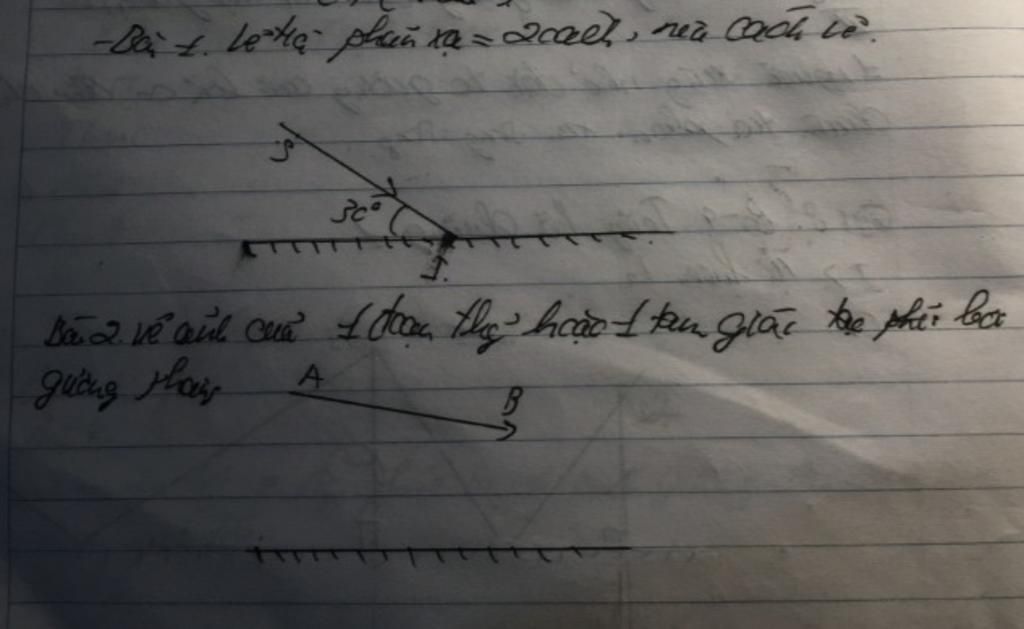 -Bài 1. Vẽ tia phản xạ = 2 cách, nêu cách vẽ.
S
30°
I
Bài 2. vẽ ảnh của 1 đoạn thg̉ hoặc 1 tam giác tạo phải bởi
gương phẳng
A
B